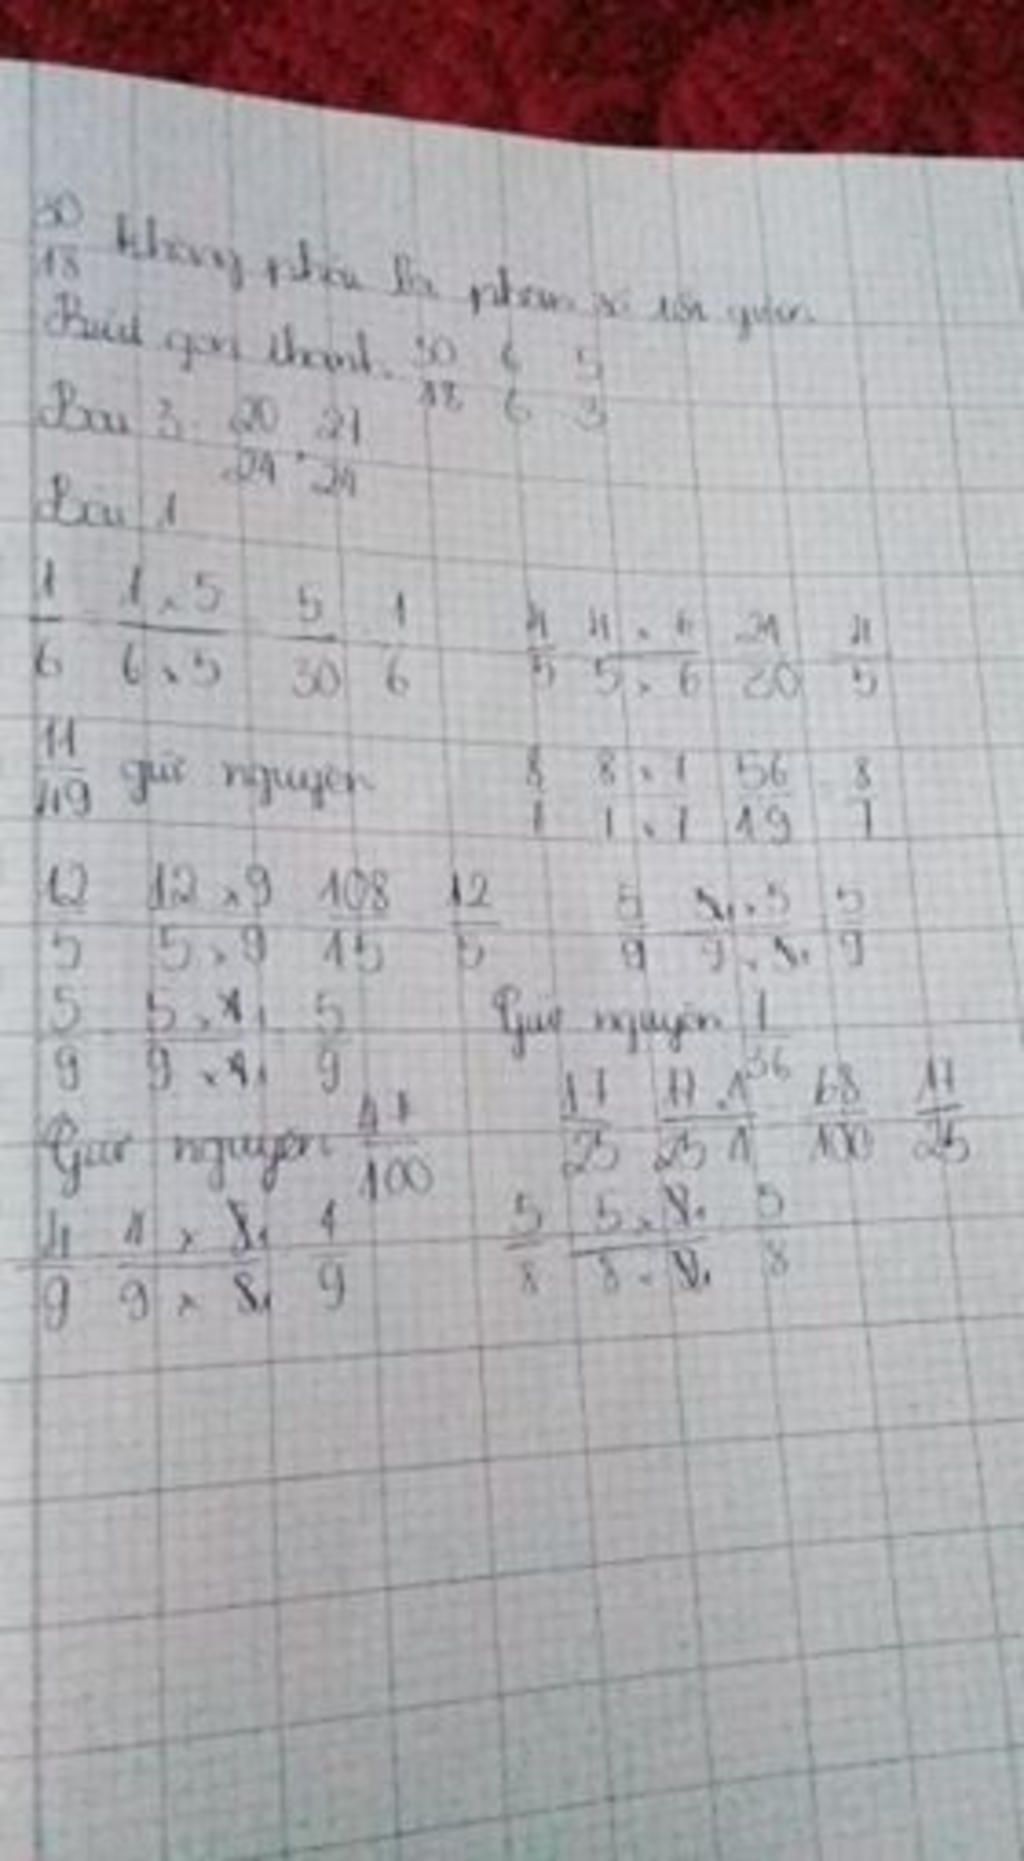 30/18 không phải là phân số tối giản
Rút gọn thành: 30 6 5
18 6 3
Bài 3: 20/24, 21/24
Bài 1
1/6 1×5/6×5 5/30 1/6 4/5 4×6/5×6 24/30 4/5
11/49 giữ nguyên 8/1 8×1/1×1 56/49 8/1
12/5 12×9/5×9 108/45 12/5 5/9 ×5/9× 5/9
5/9 5×/9× 5/9 Giữ nguyên 1/36
Giữ nguyên 41/100 17/25 17 1/25 1 68/100 17/25
4/9 4×8/9×8 4/9 5/8 5×8/8×8 5/8